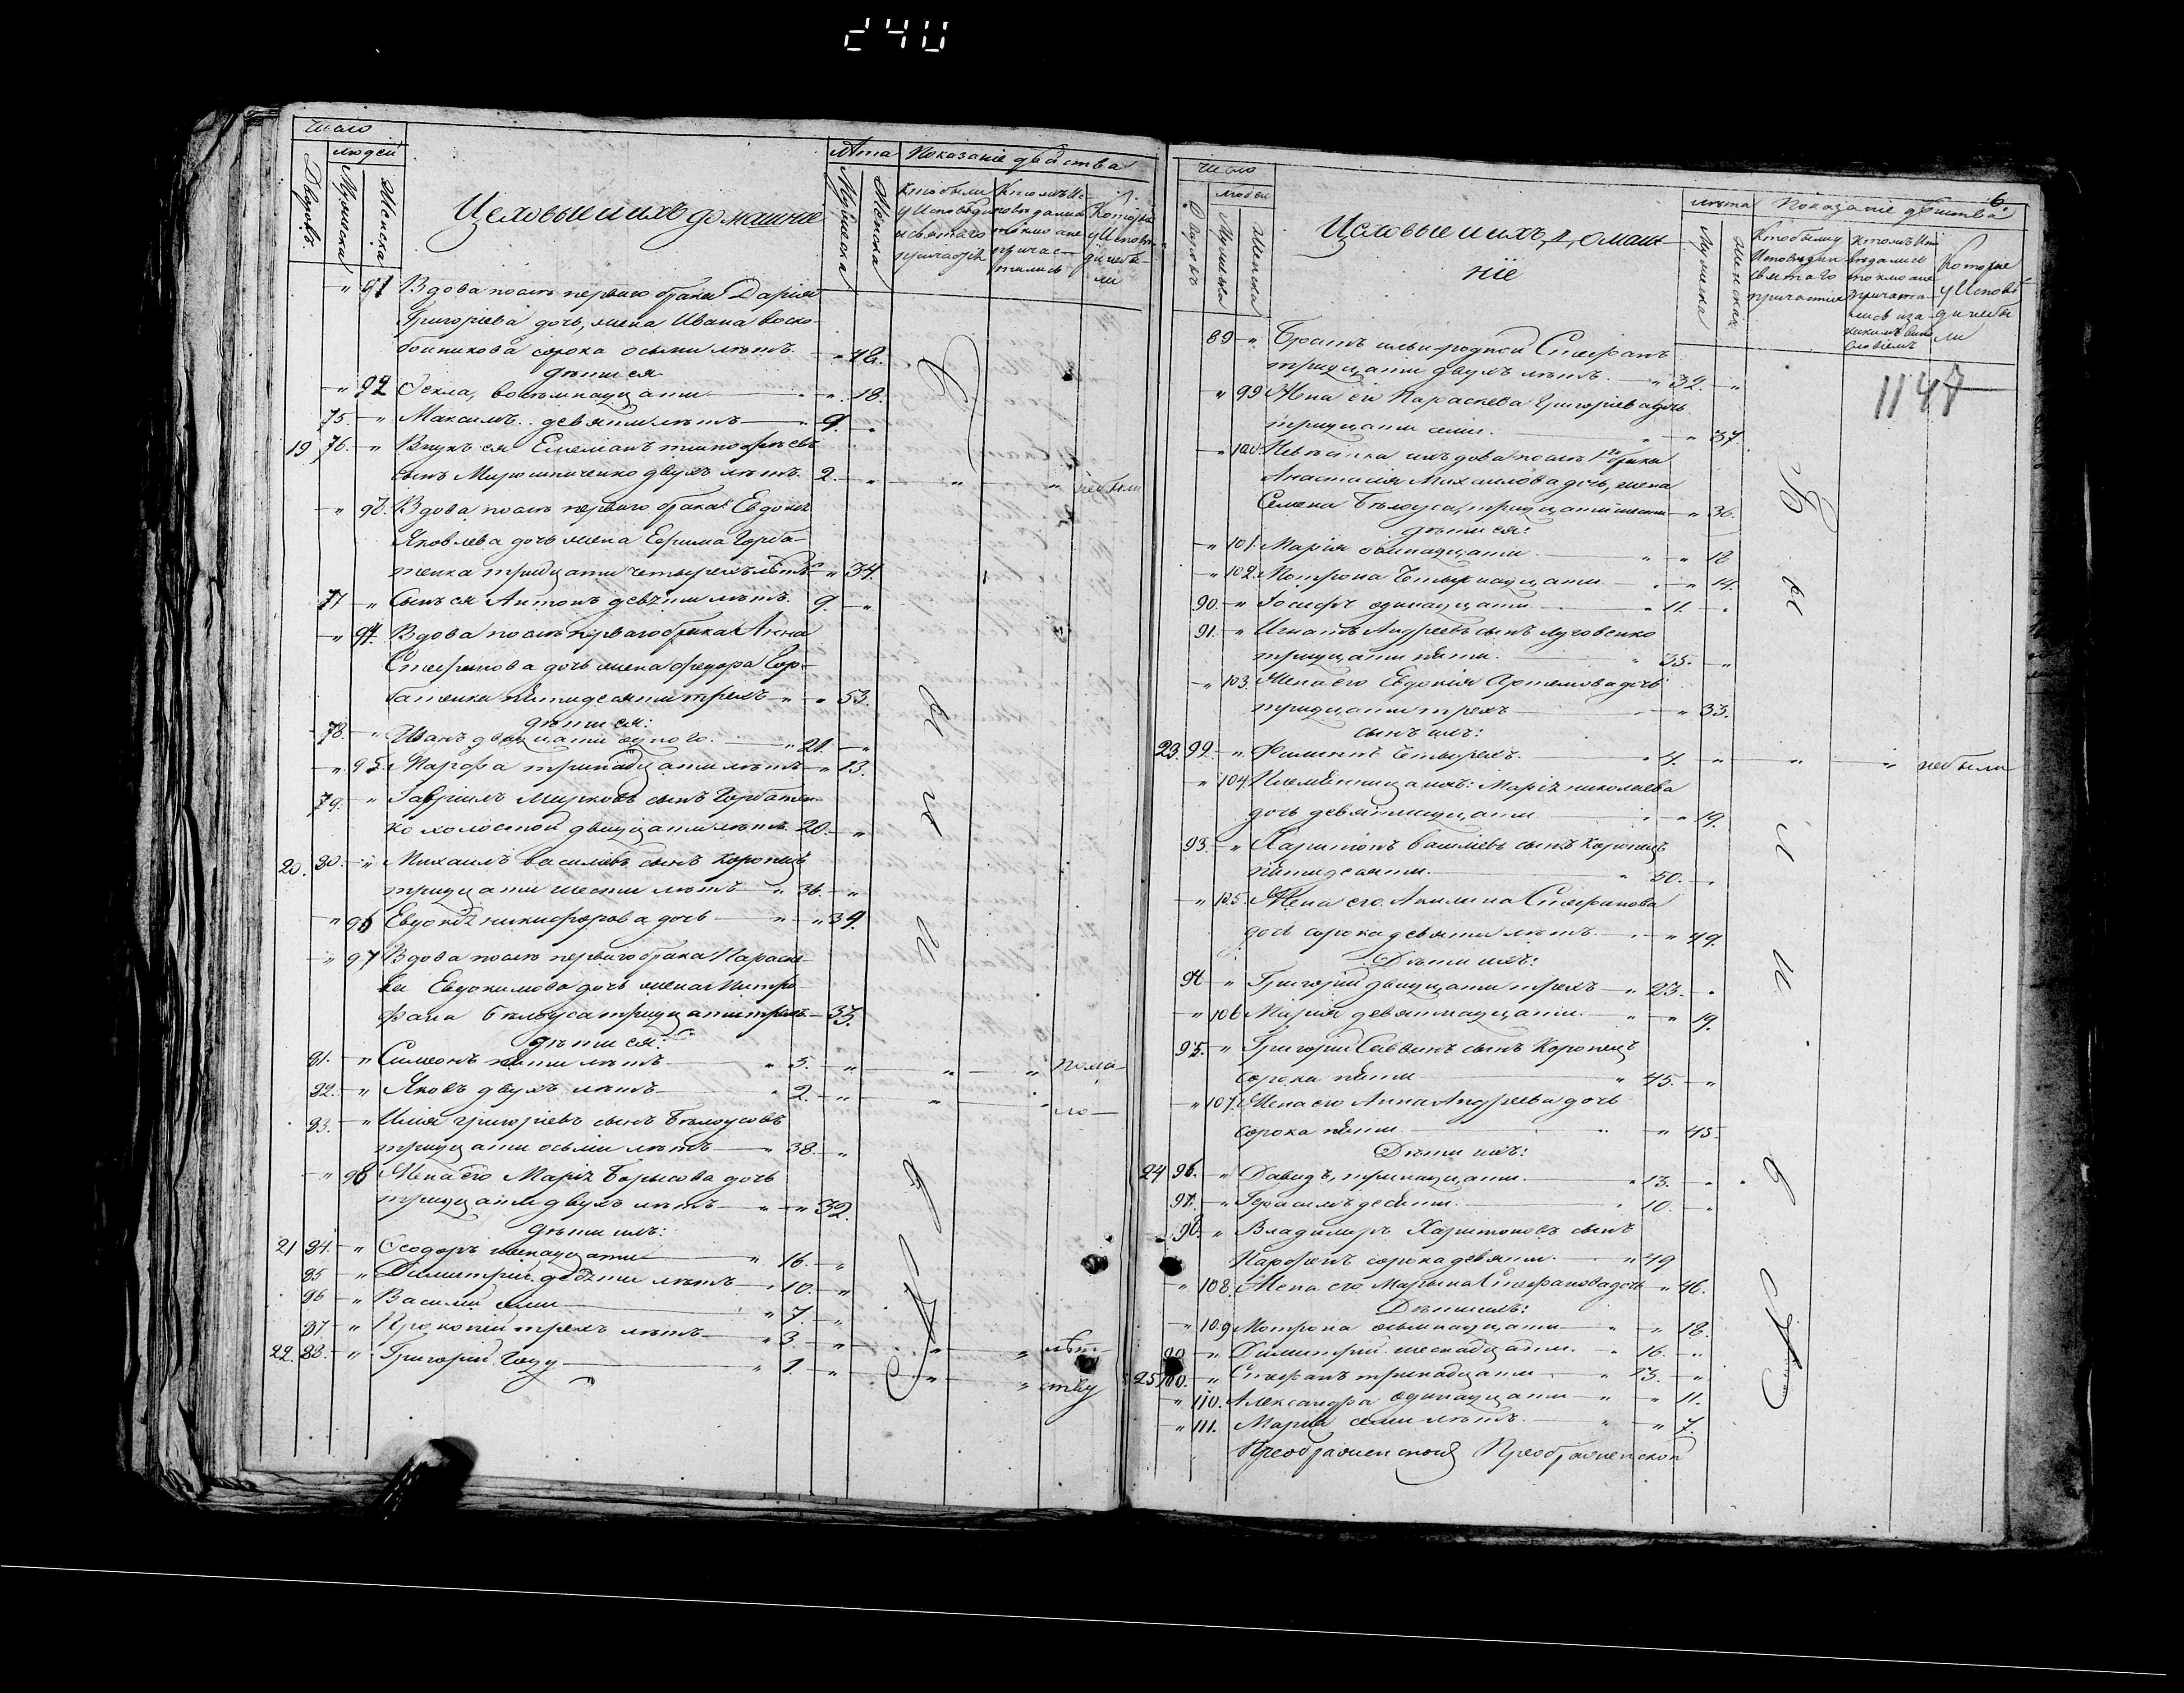 240
Число
людей
Дворовъ
Мужеска
Женска
Цеховые и ихъ домашніе
Лѣта
Мужеска
Женска
Показаніе действа
Кто были
у Исповѣди
и святаго
причастія
Которые
у Исповѣ-
ди небы-
ли
" 91 Вдова послѣ перваго брака Дарія
Григоріева дочь, жена Ивана Воско-
бойникова сорока осьми лѣтъ " 48.
Дѣти ея
" 92 Ѳекла, восьмнадцати " 18.
75. " Максимъ девяти лѣтъ 9. "
19 76. " Внукъ ея Емеліанъ Тимофѣевъ
сынъ Мирошниченко двухъ лѣтъ. 2. " " " небыли
" 93. Вдова послѣ перваго брака Евдокія
Яковлева дочь жена Ефрима Горба-
тенка тридцати четырехъ лѣтъ " 34.
77 " Сынъ ея Антонъ девяти лѣтъ. 9. "
" 94. Вдова послѣ перваго брака Анна
Стефанова дочь жена Федора Гор-
батенка пятидесяти трехъ " " 53.
Дѣти ея:
78. " Иванъ двадцати одного. " 21. "
" 95. Марфа тринадцати лѣтъ " 13.
79. " Гавріилъ Марковъ сынъ Горбатен-
ко холостой двадцати лѣтъ. 20. "
20. 80. " Михаилъ Васильевъ сынъ Коропецъ
тридцати шести лѣтъ " 36. "
" 96 Евдокія Никифорова дочь " " 39.
" 97 Вдова послѣ перваго брака Параске-
ва Евдокимова дочь жена Митро-
фана Бѣлоуса тридцати трехъ 33.
Дѣти ея:
81. " Симеонъ пяти лѣтъ " 5. " " " помa-
82. " Яковъ двухъ лѣтъ " 2. " " " ло-
83. " Илія Григоріевъ сынъ Бѣлоусовъ
тридцати осьми лѣтъ " 38. "
" 98 Жена его Марія Борисова дочь
тридцати двухъ лѣтъ " " 32.
Дѣти ихъ:
21 84. " Ѳеодоръ шестнадцати " 16. "
85 " Димитрій десяти лѣтъ " 10. "
86 " Василій семи " 7. "
87 " Прокопій трехъ лѣтъ " 3. " " " лѣт-
22. 88. " Григорій году " 1. " " " ству
Были
Число
людей
Дворовъ
Мужеска
Женска
Цеховые и ихъ домаш-
ніе
6.
лѣта
Мужеска
Женска
Показаніе действа
Кто были у
Исповѣди и
святаго
причастія
Которые
у Исповѣ-
ди небы
ли
1147
89 " Братъ ихъ родной Стефанъ
тридцати двухъ лѣтъ. " 32. "
" 99 Жена его Параскева Григоріева дочь
тридцати семи. " " 37.
" 100. Невѣстка ихъ вдова послѣ 1го брака
Анастасія Михаилова дочь, жена
Семена Бѣлоуса, тридцати шести " 36.
Дѣти ея:
" 101. Марія осьмнадцати " " 18
" 102. Мотрона Четырнадцати " " 14.
90. " Іосифъ одинадцати " 11. "
91. " Игнатъ Андреевъ сынъ Луговенко
тридцати пяти. " 35. "
" 103. Жена его Евдокія Артемова дочь
тридцати трехъ " " 33.
сынъ ихъ:
23. 92. " Филиппъ Четырехъ. " 4. " " " небыли
" 104. Племянница ихъ: Марія Николаева
дочь девятнадцати " " 19.
93. " Харитонъ Василіевъ сынъ Коропецъ
пятидесяти. " 50. "
" 105. Жена его Акилина Стефанова
дочь сорока девяти лѣтъ " " 49.
Дѣти ихъ:
94 " Григорій двадцати трехъ " 23. "
" 106 Марія девятнадцати. " " 19.
95. " Григорій Саввинъ сынъ Коропецъ
сорока пяти " 45. "
" 107. Жена его Анна Андреева дочь
сорока пяти " " 45.
Дѣти ихъ:
24 96. " Давидъ, тринадцати. " 13. "
97. " Герасимъ десяти. " 10. "
98. " Владимиръ Харитоновъ сынъ
сорока девяти. " 49
" 108. Жена его Марьяна Стефанова дочь " 46.
Дѣти ихъ:
" 109 Мотрона осьмнадцати " " 18.
99 " Димитрій шеснадцати. " 16. "
25 100. " Стефанъ тринадцати " 13. "
" 110. Александра одинадцати " " 11.
" 111. Марія семи лѣтъ. " " 7.
Преображенской
Были